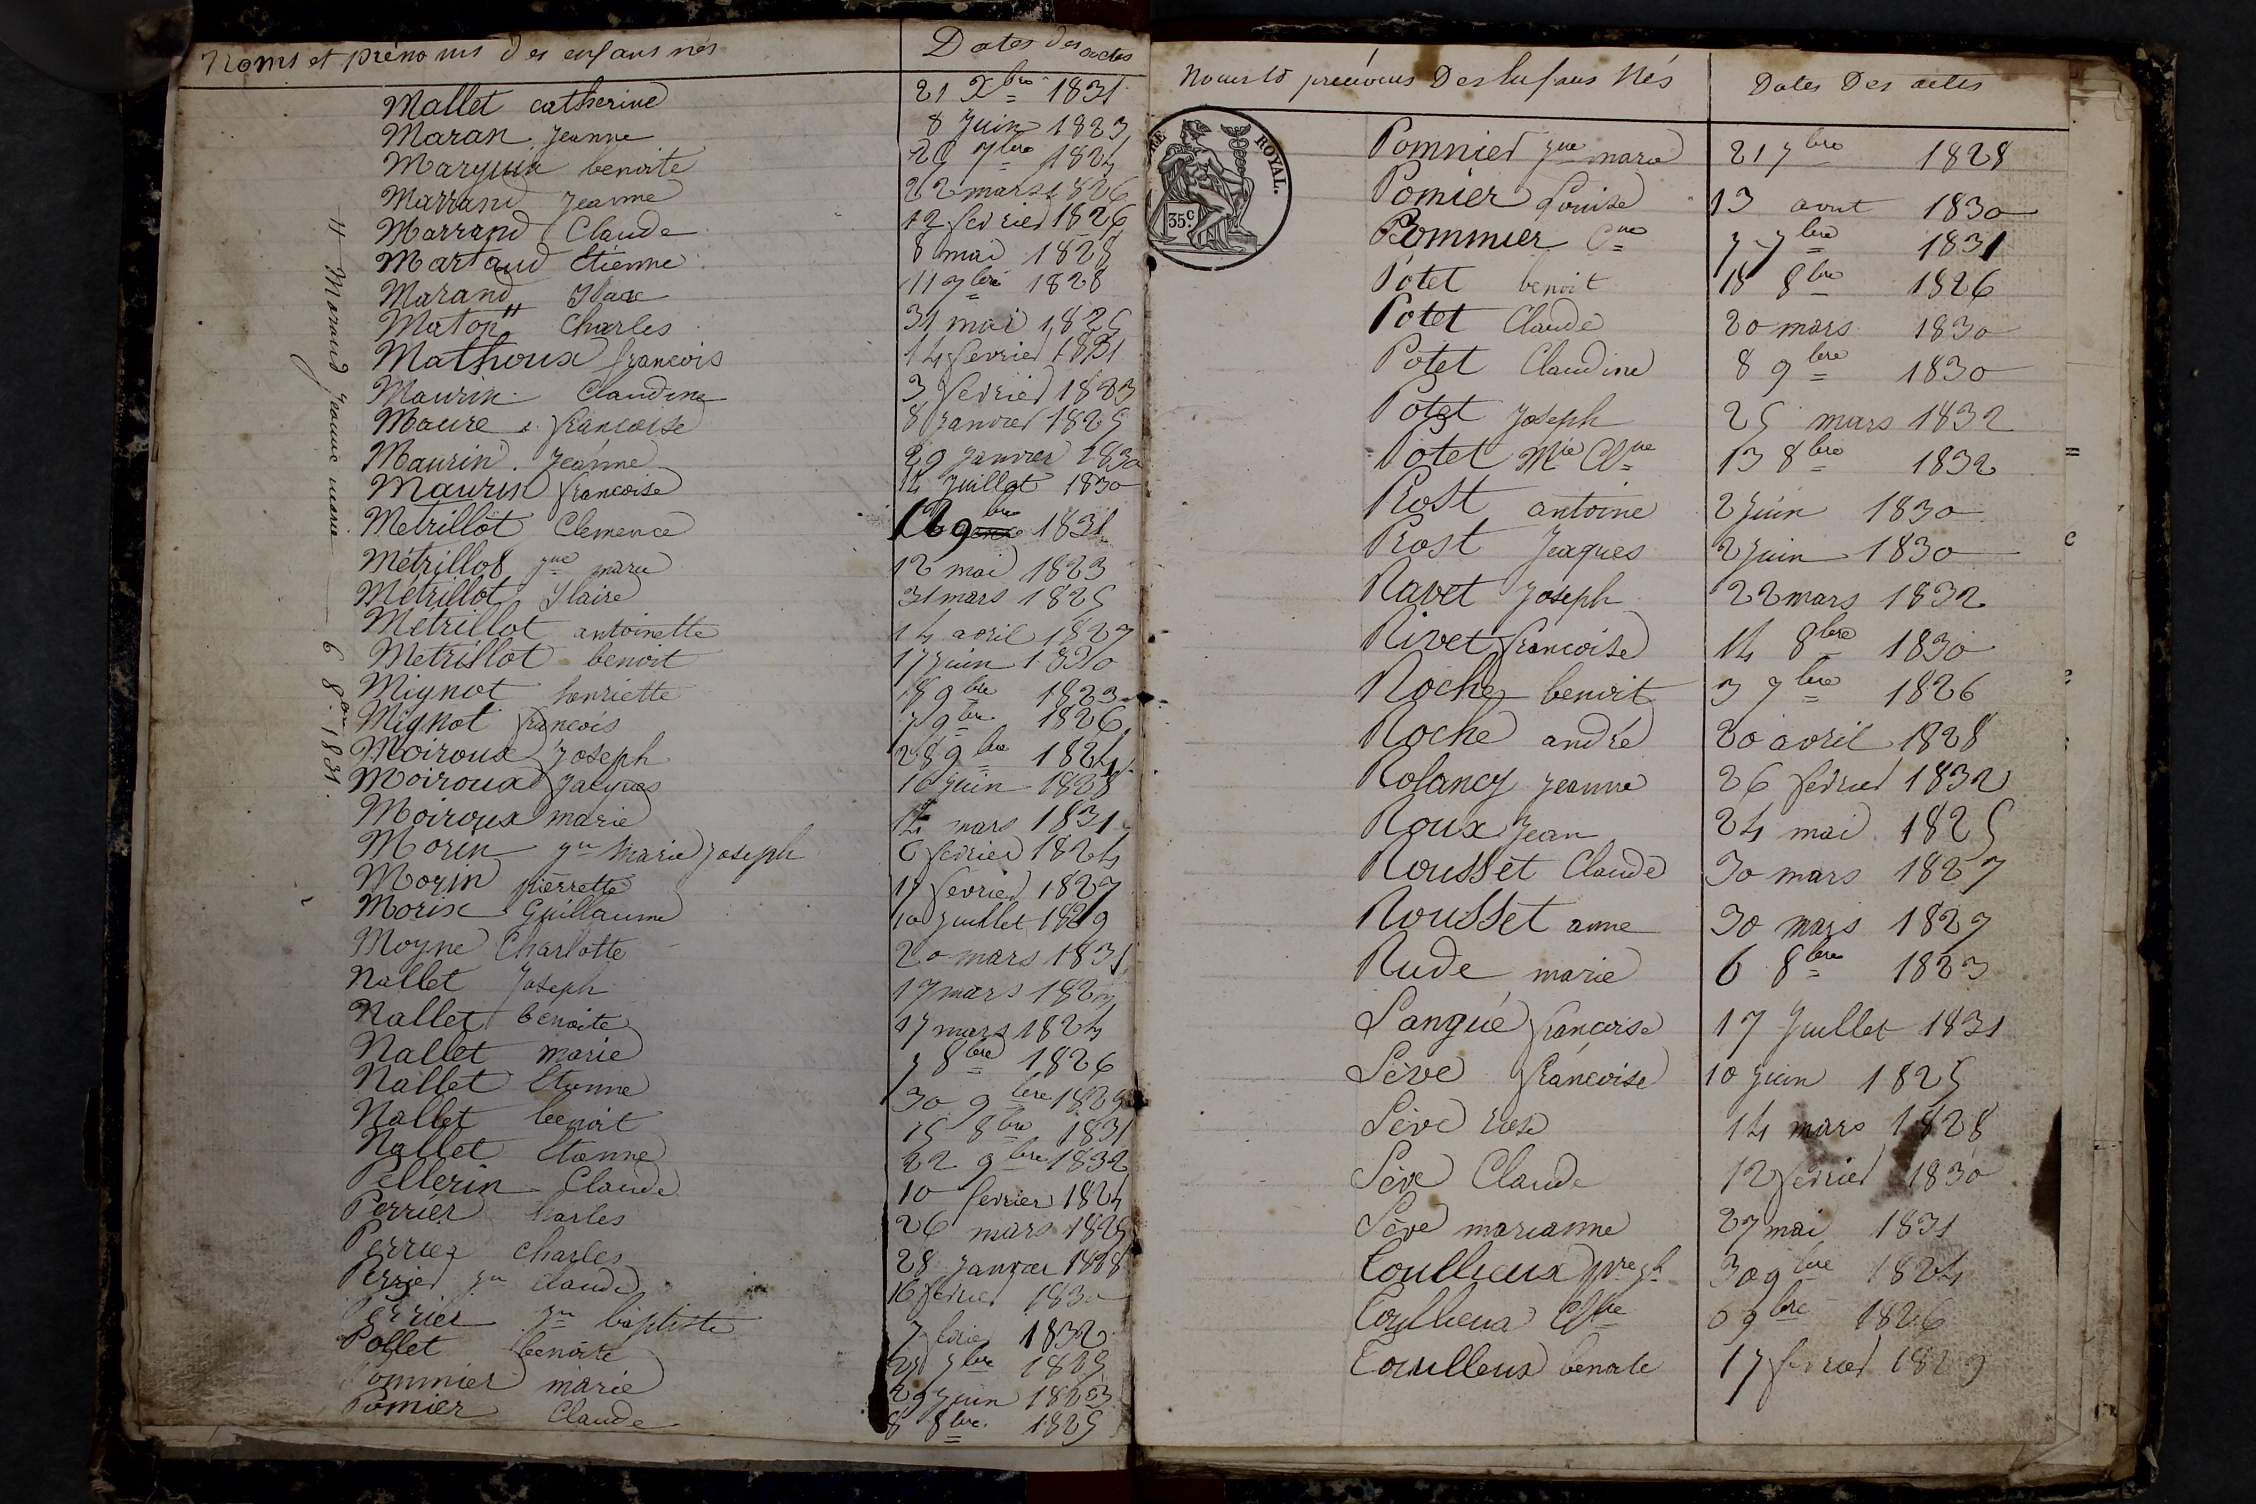 Noms et prénoms des enfans nés Dates des actes
Mallet catherine 21 Xbre 1831
Maran Jeanne 8 Juin 1823
Marguin benoite 7bre 1824
Marrand Jeanne 22 mars 1826
Marrand Claude 12 fevrier 1826
Martaud Etienne 8 mai 1828
Marand 11 7bre 1828
Maton Charles 31 mai 1825
Mathoux francois 14 fevrier 1831
Maurin Claudine 3 fevrier 1823
Maure francoise 8 Janvier 1825
Maurin Jeanne 29 Janvier 1830
Maurin francoise 14 Juillet 1830
Metrillot Clemence 9bre 1831
Métrillot jne marie 12 mai 1823
Métrillot Ilaire 31 mars 1825
Metrillot antoinette 14 avril 1827
Metrillot benoit 17 juin 1830
Mignot henriette 18 9bre 1823
Mignot francois 7 9bre 1826
Moiroux Joseph 28 9bre 1824
Moiroux Jacques 10 Juin 1828
Moiroux marie 14 mars 1831
Morin jn Marie Joseph 6 fevrier 1824
Morin pierrette 17 fevrier 1827
Morin Guillaume 10 Juillet 1829
Moyne Charlotte 20 mars 1831
Nallet Joseph 17 mars
Nallet benoite 17 mars 1824
Nallet marie 7 8bre 1826
Nallet Etienne 30 9bre 1829
Nallet benoit 15 8bre 1831
Nallet Etienne 22 9bre 1832
Pellerin Claude 10 fevrier 1824
Perrier Charles 26 mars
Perrier Charles 28 Janvier 1828
Perrier jn claude 16 fevrier 1830
Perrier jn baptiste 7 fevrier 1832
Pollet benoite 7bre 1825
Pommier marie 29 Juin 1823
Pomier Claude 8 8bre 1825
Marand Jeanne marie 6 8bre 1831.
Noms et prénoms Des Enfans Nés Dates Des actes
ROYAL.
35c
Pomnier jne marie 21 7bre 1828
Pomier Louise 13 aout 1830
Pommier Cne 7 7bre 1831
Potet benoit 18 8bre 1826
Potet Claude 20 mars 1830
Potet Claudine 8 9bre 1830
Potet Joseph 25 mars 1832
Potet Mie Clne 13 8bre 1832
Prost antoine 2 Juin 1830
Prost Jacques 2 Juin 1830
Ravet Joseph 22 mars 1832
Rivet francoise 14 8bre 1830
Roche benoit 3 7bre 1826
Roche andré 20 avril 1828
Rolancy Jeanne 26 fevrier 1832
Roux Jean 24 mai 1825
Rousset Claude 30 mars 1827
Rousset anne 30 mars 1827
Rude marie 6 8bre 1823
Sangué francoise 17 Juillet 1831
Sève francoise 10 Juin 1825
Sève rose 14 mars 1828
Sève Claude 12 fevrier 1830
Sève marianne 27 mai 1831
Toullieux 30 9bre 1824
Toullieux 9bre 1826
Toullieux benoite 17 fevrier 1829